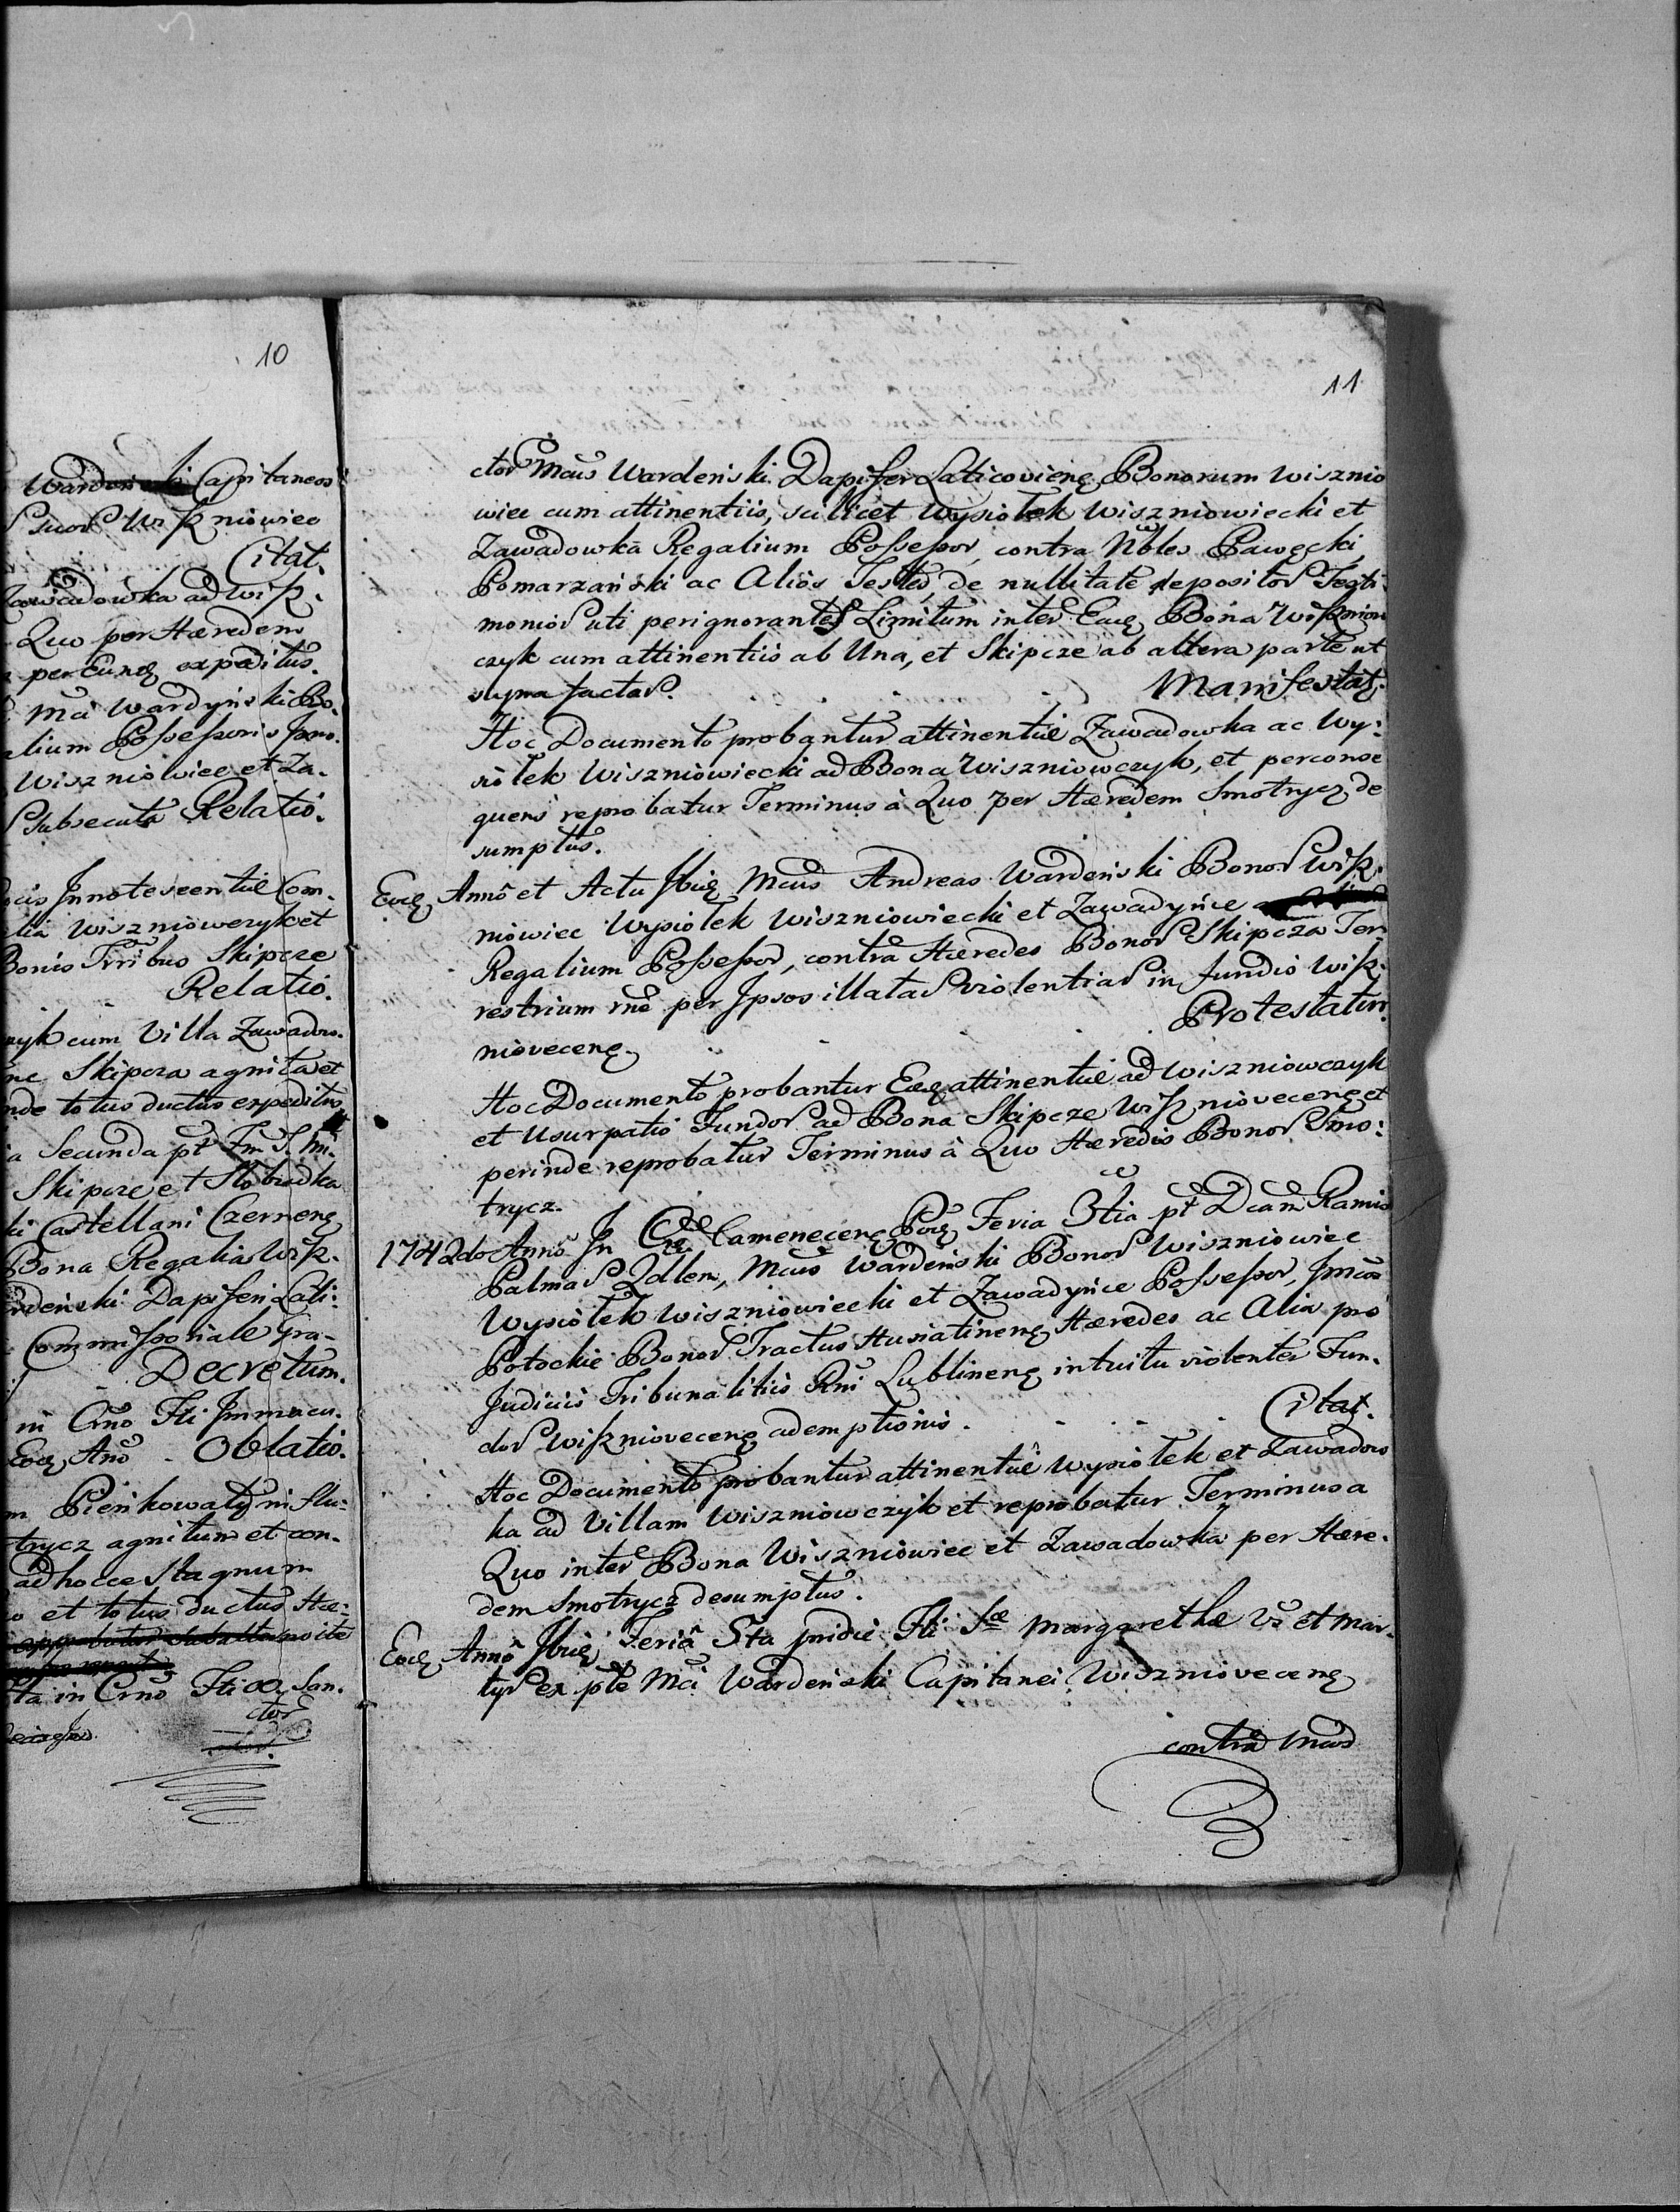 10
Wardeński Capitaneos
suor Wiszniowiec
Citat.
Zawadowka ad Wisz.
Quo per Hæredem
per Eund expeditus.
Mci Wardyński Bo.
alium Possessoris
Wiszniowiec et Za.
Subsecuta Relatio.
Innotescentiæ Com.
Wiszniowczyk et
Bonis Trribus Skipcze
Relatio.
czyk cum Villa Zawadow.
Skipcza agnita et
inde totus ductus expeditus
a Secunda pt
Skipcze et Slobudka
ki Castellani Czernenę
Bona Regalia Wisz.
rdeński Dapiferi Lati:
Commissoriale Gra-
Decretum.
ni Crno Fti Immacu.
Eodę Ano. Oblatio.
m Pieńkowaty ni Slu:
trycz agnitum et con.
ad hocce Stagnum
o et totus ductus Hæ:
ta in Crno Fti OO. San.
ctor
11
ctor Mcus Wardeński Dapifer Laticovienę Bonorum Wisznio
wiec cum attinentiis, scilicet Wysiołek Wiszniowiecki et
Zawadowka Regalium Possessor, contra Nbles Pawęcki,
Pomarzański ac Alios Testes, de nullitate depositor Testi
monior uti perignorantes Limitum inter Eadę Bona Wiszniow
czyk cum attinentiis ab Una, et Skipcze ab altera parte ut
supra factar. Manifestatę.
Hoc Documento probantur attinentiæ Zawadowka ac Wy:
siołek Wiszniowiecki ad Bona Wiszniowczyk, et perconse
quens reprobatur Terminus à Quo per Hæredem Smotrycz de
sumptus.
Eodę Anno et Actu Ibidę Mcus Andreas Wardeński Bonor Wisz.
niowiec Wysiołek Wiszniowiecki et Zawadyńce
Regalium Possessor, contra Hæredes Bonor Skipcza Ter
restrium rne per Ipsos illatar violentiar in fundis Wisz.
niovecenę. Protestatur.
Hoc Documento probantur Eædę attinentiæ ad Wiszniowczyk
et Usurpatio Fundor ad Bona Skipcze Wiszniovecenę et
perinde reprobatur Terminus à Quo Hæredis Bonor Smo:
trycz.
1742do Anno In Camenecenę Podę Feria 3tia pt Dcam Ramis
Palmar Qdlem, Mcus Wardeński Bonor Wiszniowiec
Wysiołek Wiszniowiecki et Zawadyńce Possessor, Imcos
Potockie Bonor Tractus Husiatinenę Hæredes ac Alios pro
Judiciis Tribunalitiis Rni Lublinenę intuitu violentæ Fun.
dor Wiszniovecenę ademptionis. Citat.
Hoc Documento probantur attinentiæ Wysiołek et Zawadow
ka ad Villam Wiszniowczyk et reprobatur Terminus a
Quo inter Bona Wiszniowiec et Zawadowka per Hære.
dem Smotrycz desumptus.
Eodę Anno Ibidę Feriâ 5ta pridie Fti Sæ Margarethæ Vs et Mar.
tyr ex pte Mci Wardeński Capitanei Wiszniovecenę
contra Mcos